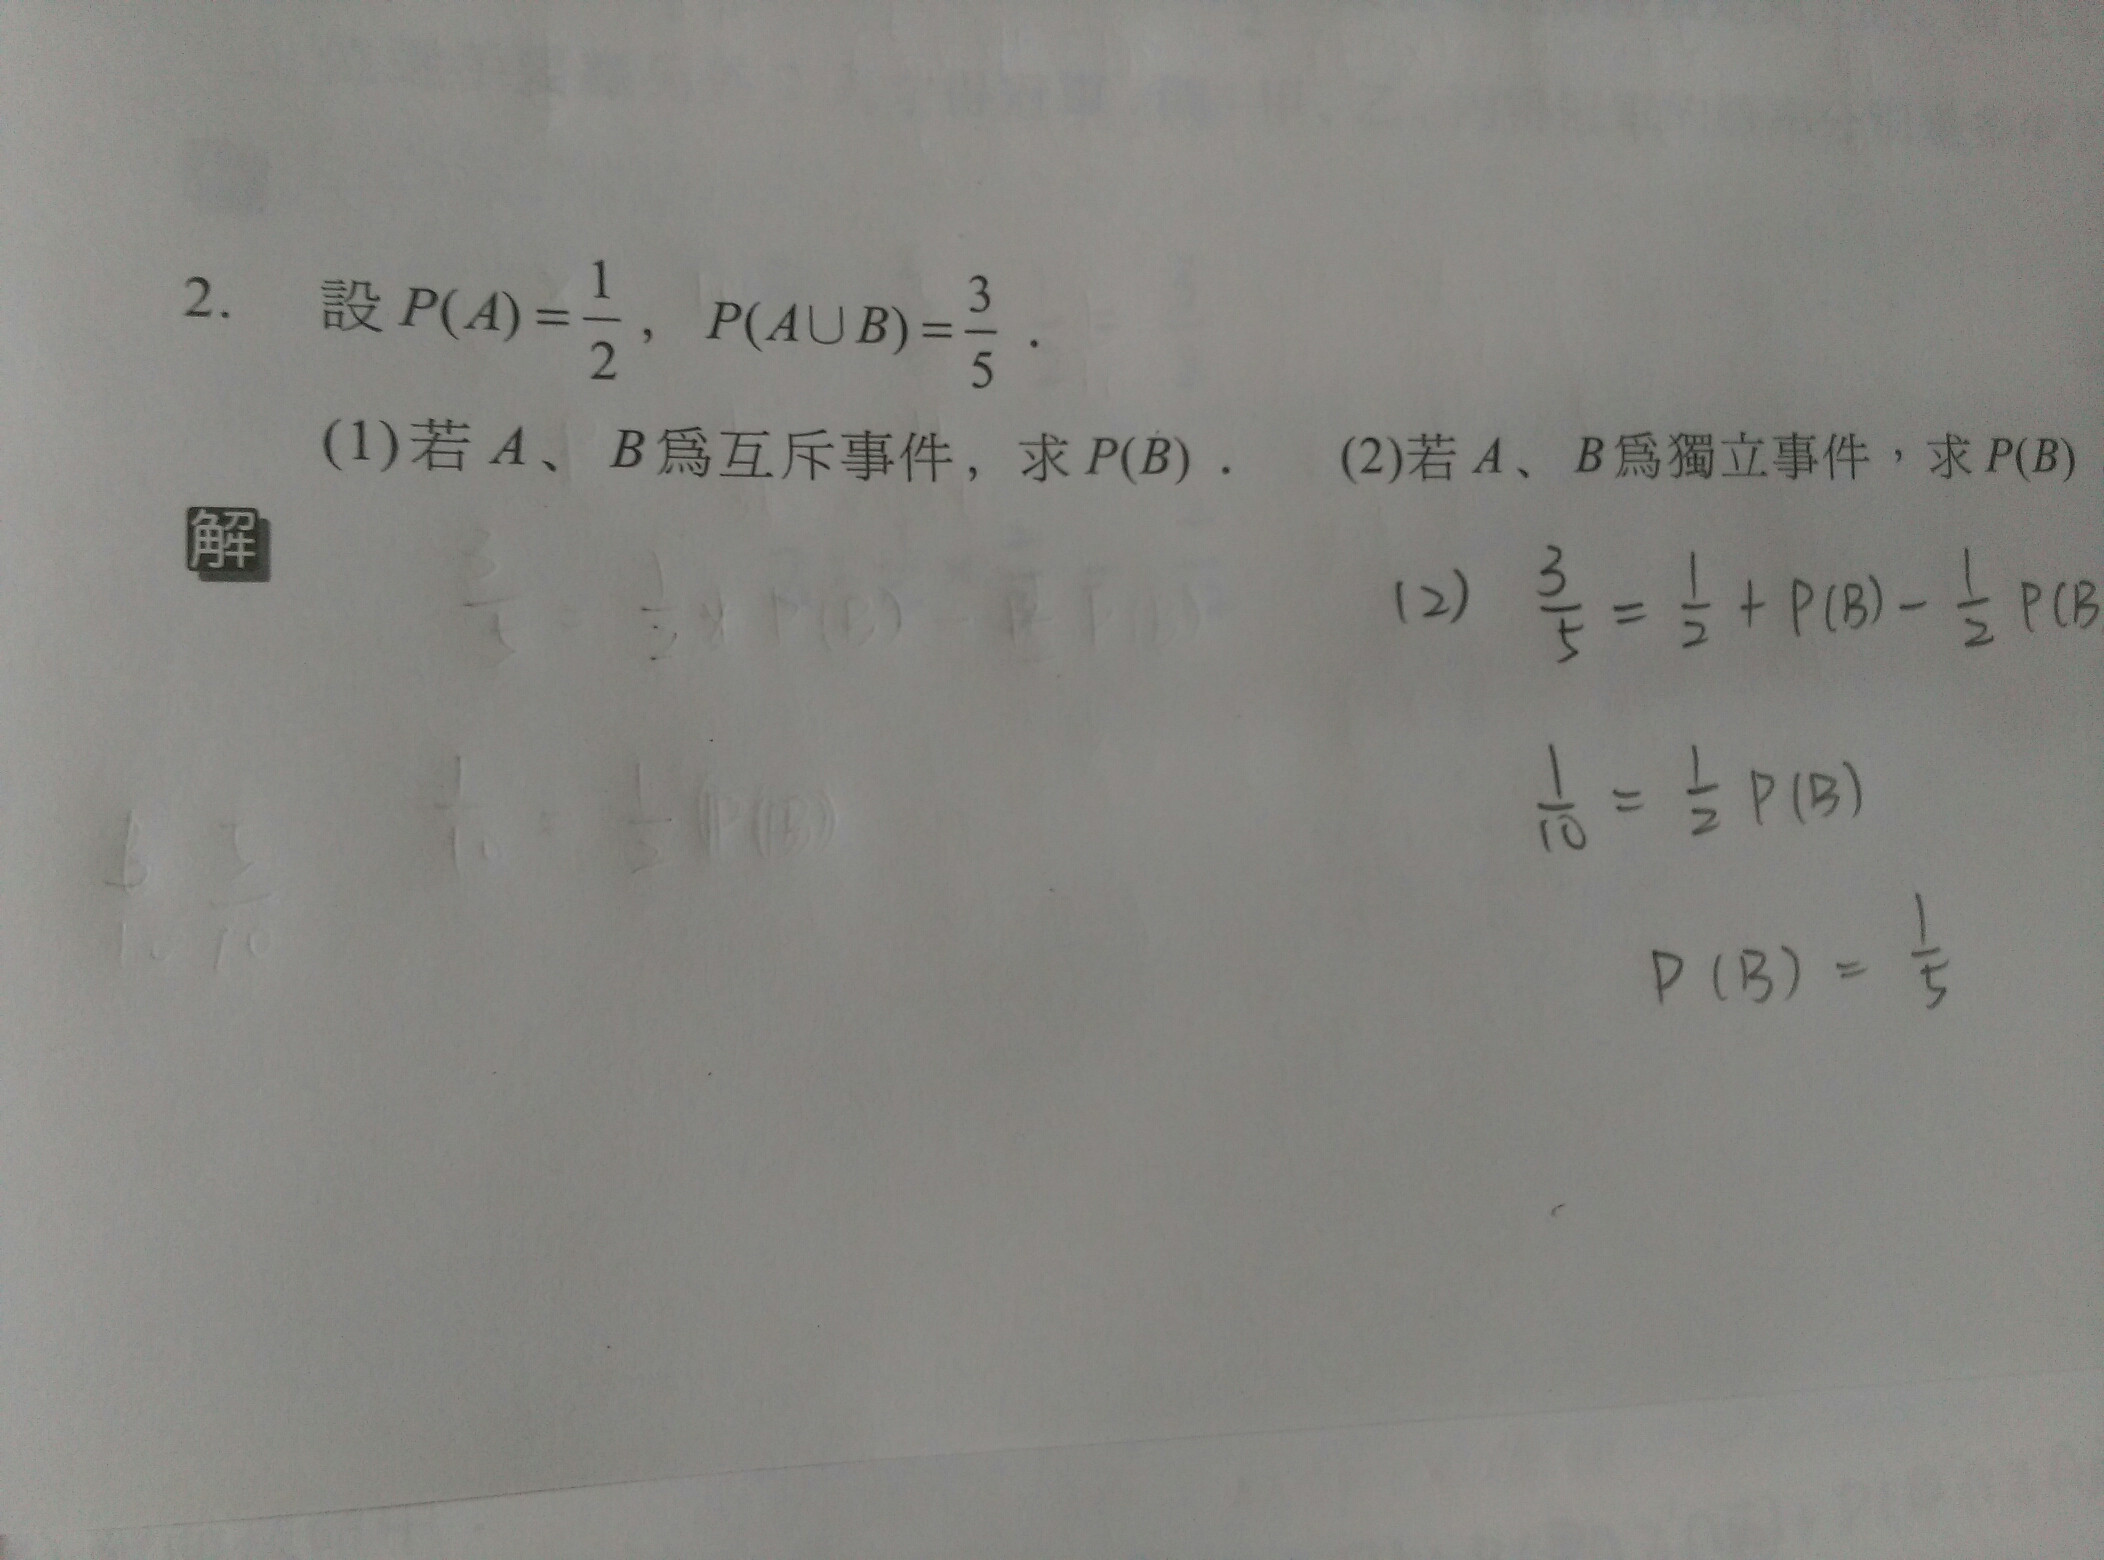 2. 設 P(A)=1/2, P(A∪B)=3/5.
(1)若 A、B為互斥事件, 求 P(B). (2)若 A、B為獨立事件,求 P(B)
解
(2) 3/5 = 1/2 + P(B) - 1/2 P(B
1/10 = 1/2 P(B)
P(B) = 1/5